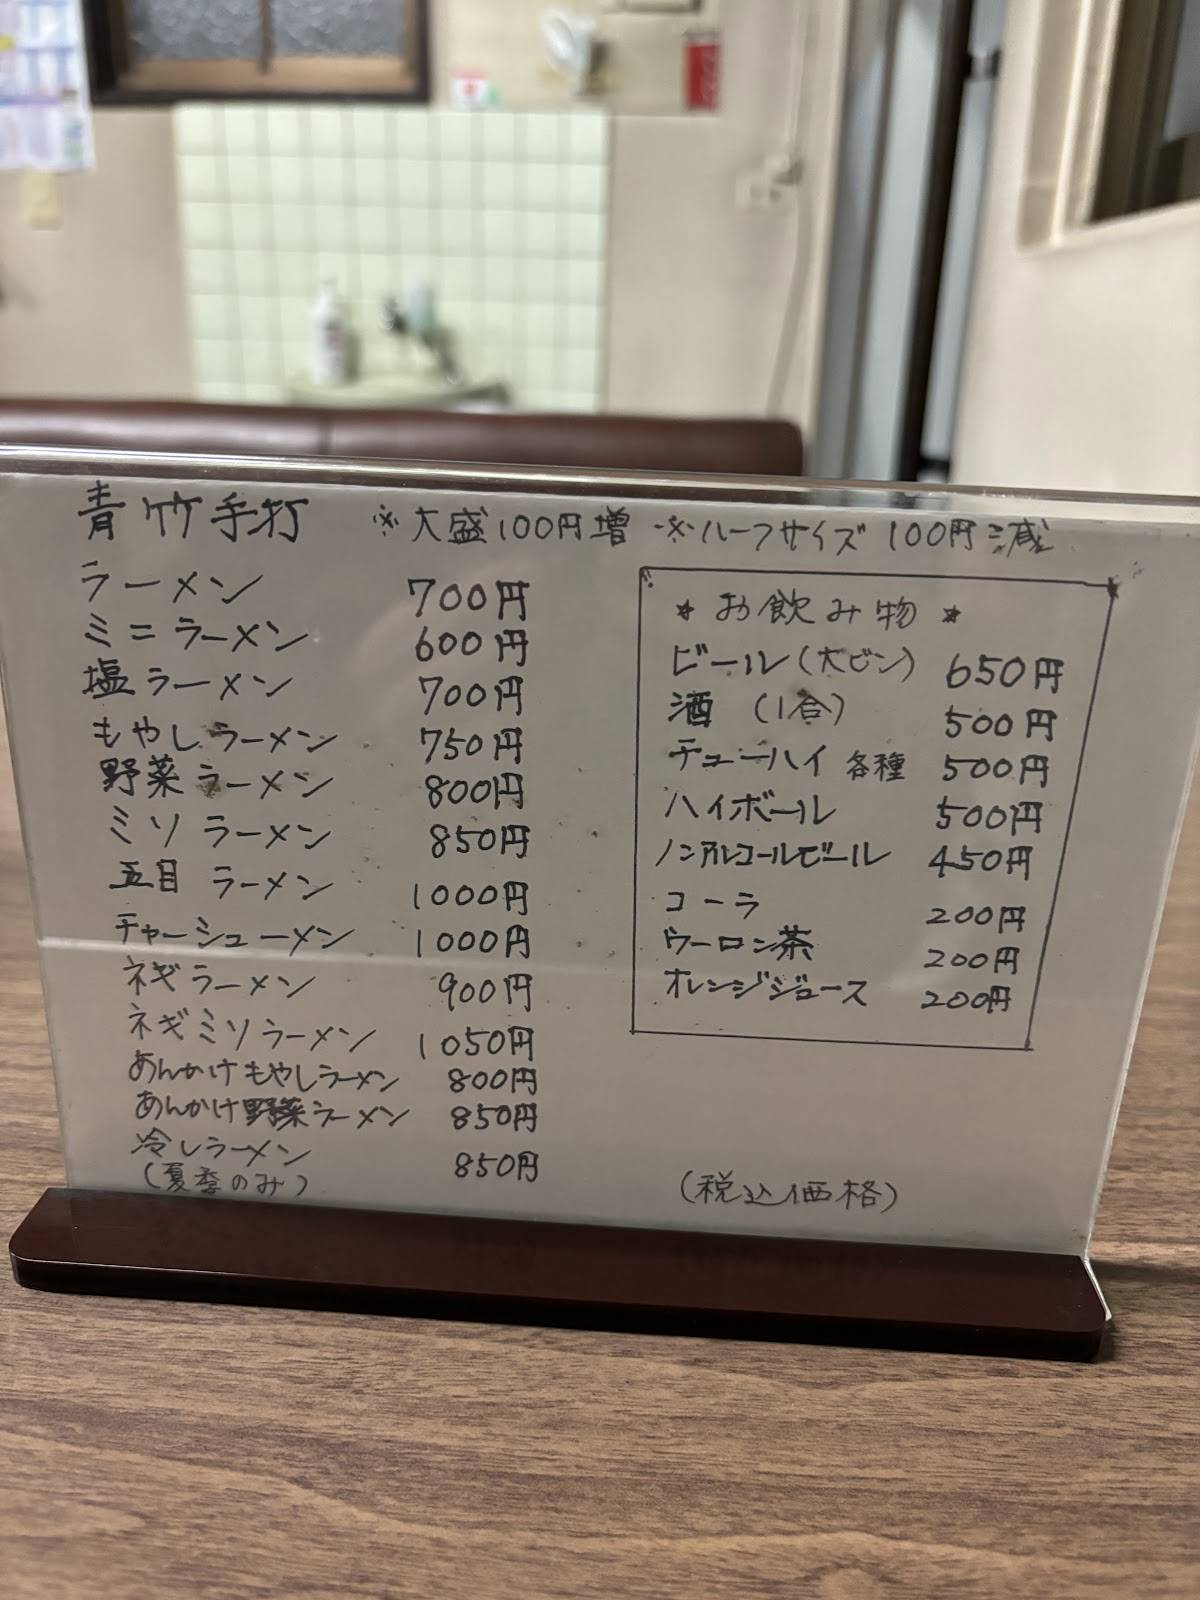 青竹手打 ※大盛100円増 ※ハーフサイズ 100円減
ラーメン 700円
ミニラーメン 600円
塩ラーメン 700円
もやしラーメン 750円
野菜ラーメン 800円
ミソラーメン 850円
五目ラーメン 1000円
チャーシューメン 1000円
ネギラーメン 900円
ネギミソラーメン 1050円
あんかけもやしラーメン 800円
あんかけ野菜ラーメン 850円
冷しラーメン 850円
(夏季のみ)
* お飲み物 *
ビール(大ビン) 650円
酒 (1合) 500円
チューハイ 各種 500円
ハイボール 500円
ノンアルコールビール 450円
コーラ 200円
ウーロン茶 200円
オレンジジュース 200円
(税込価格)